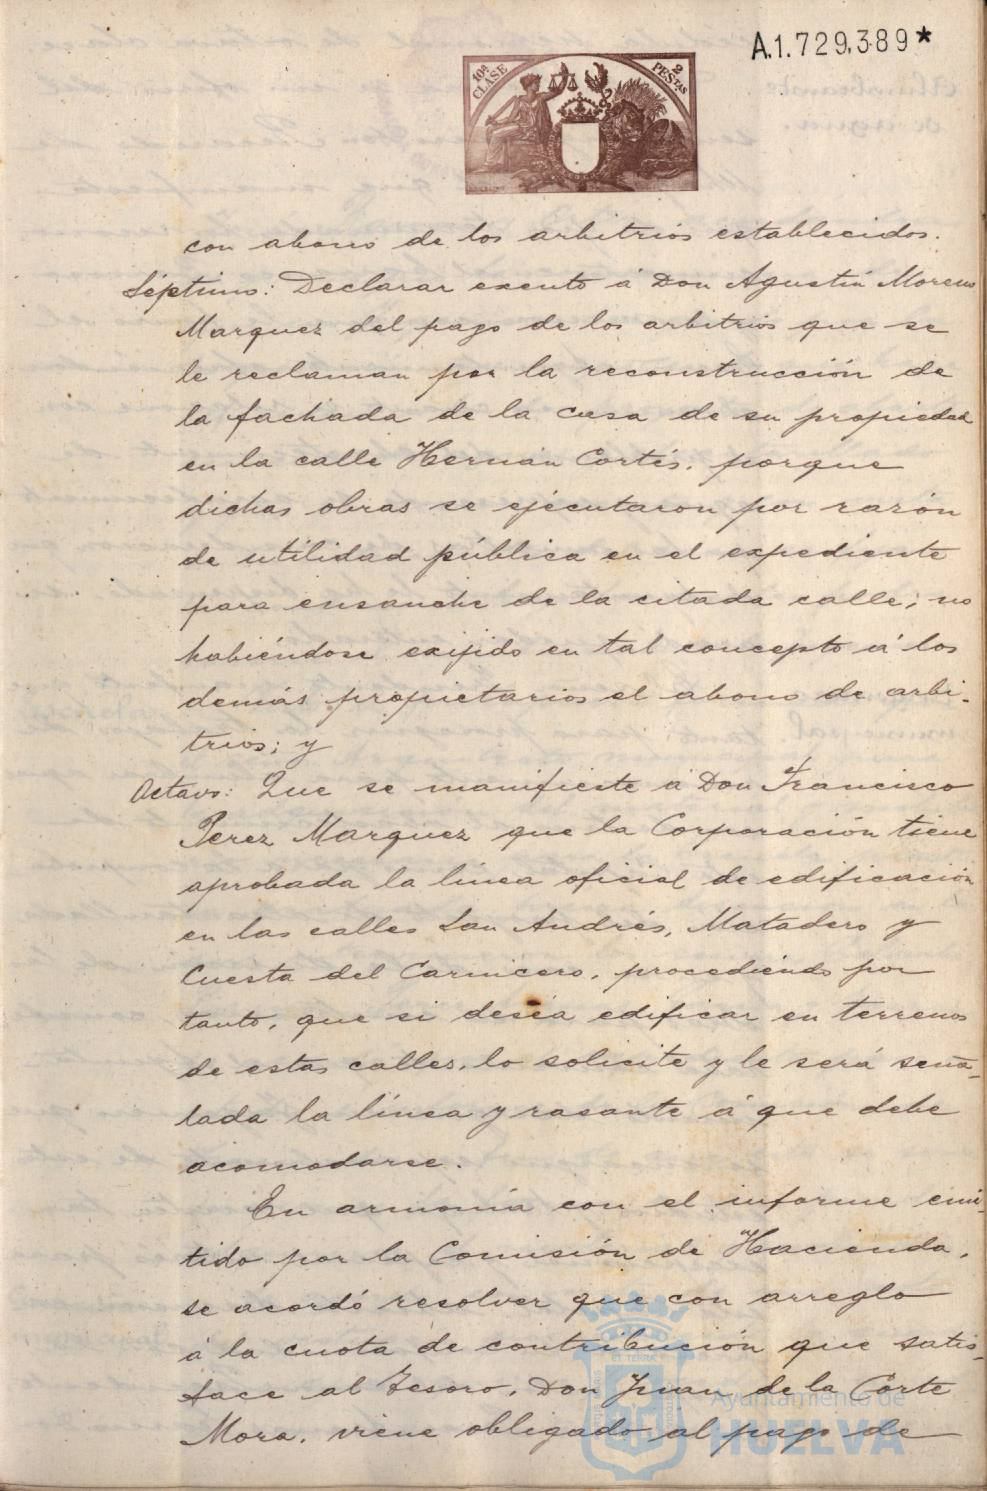 A.1.729,389*
10ª CLASE
2 PESTAS
con abono de los arbitrios establecidos.
Séptimo: Declarar exento á Don Agustín Moreno
Marquez del pago de los arbitrios que se
le reclaman por la reconstrucción de
la fachada de la casa de su propiedad
en la calle Hernán Cortés, porque
dichas obras se ejecutaron por razón
de utilidad pública en el expediente
para ensanche de la citada calle; no
habiéndose exijido en tal concepto á los
demás propietarios el abono de arbi-
trios; y
Octavo: Que se manifieste á Don Francisco
Perez Marquez que la Corporación tiene
aprobada la línea oficial de edificación
en las calles San Andrés, Matadero y
Cuesta del Carnicero, procediendo por
tanto, que si deséa edificar en terrenos
de estas calles, lo solicite y le será seña-
lada la línea y rasante á que debe
acomodarse.
En armonía con el informe emi-
tido por la Comisión de Hacienda,
se acordó resolver que con arreglo
á la cuota de contribución que satis-
face al Tesoro, Don Juan de la Corte
Mora, viene obligado al pago de
Ayuntamiento de
HUELVA